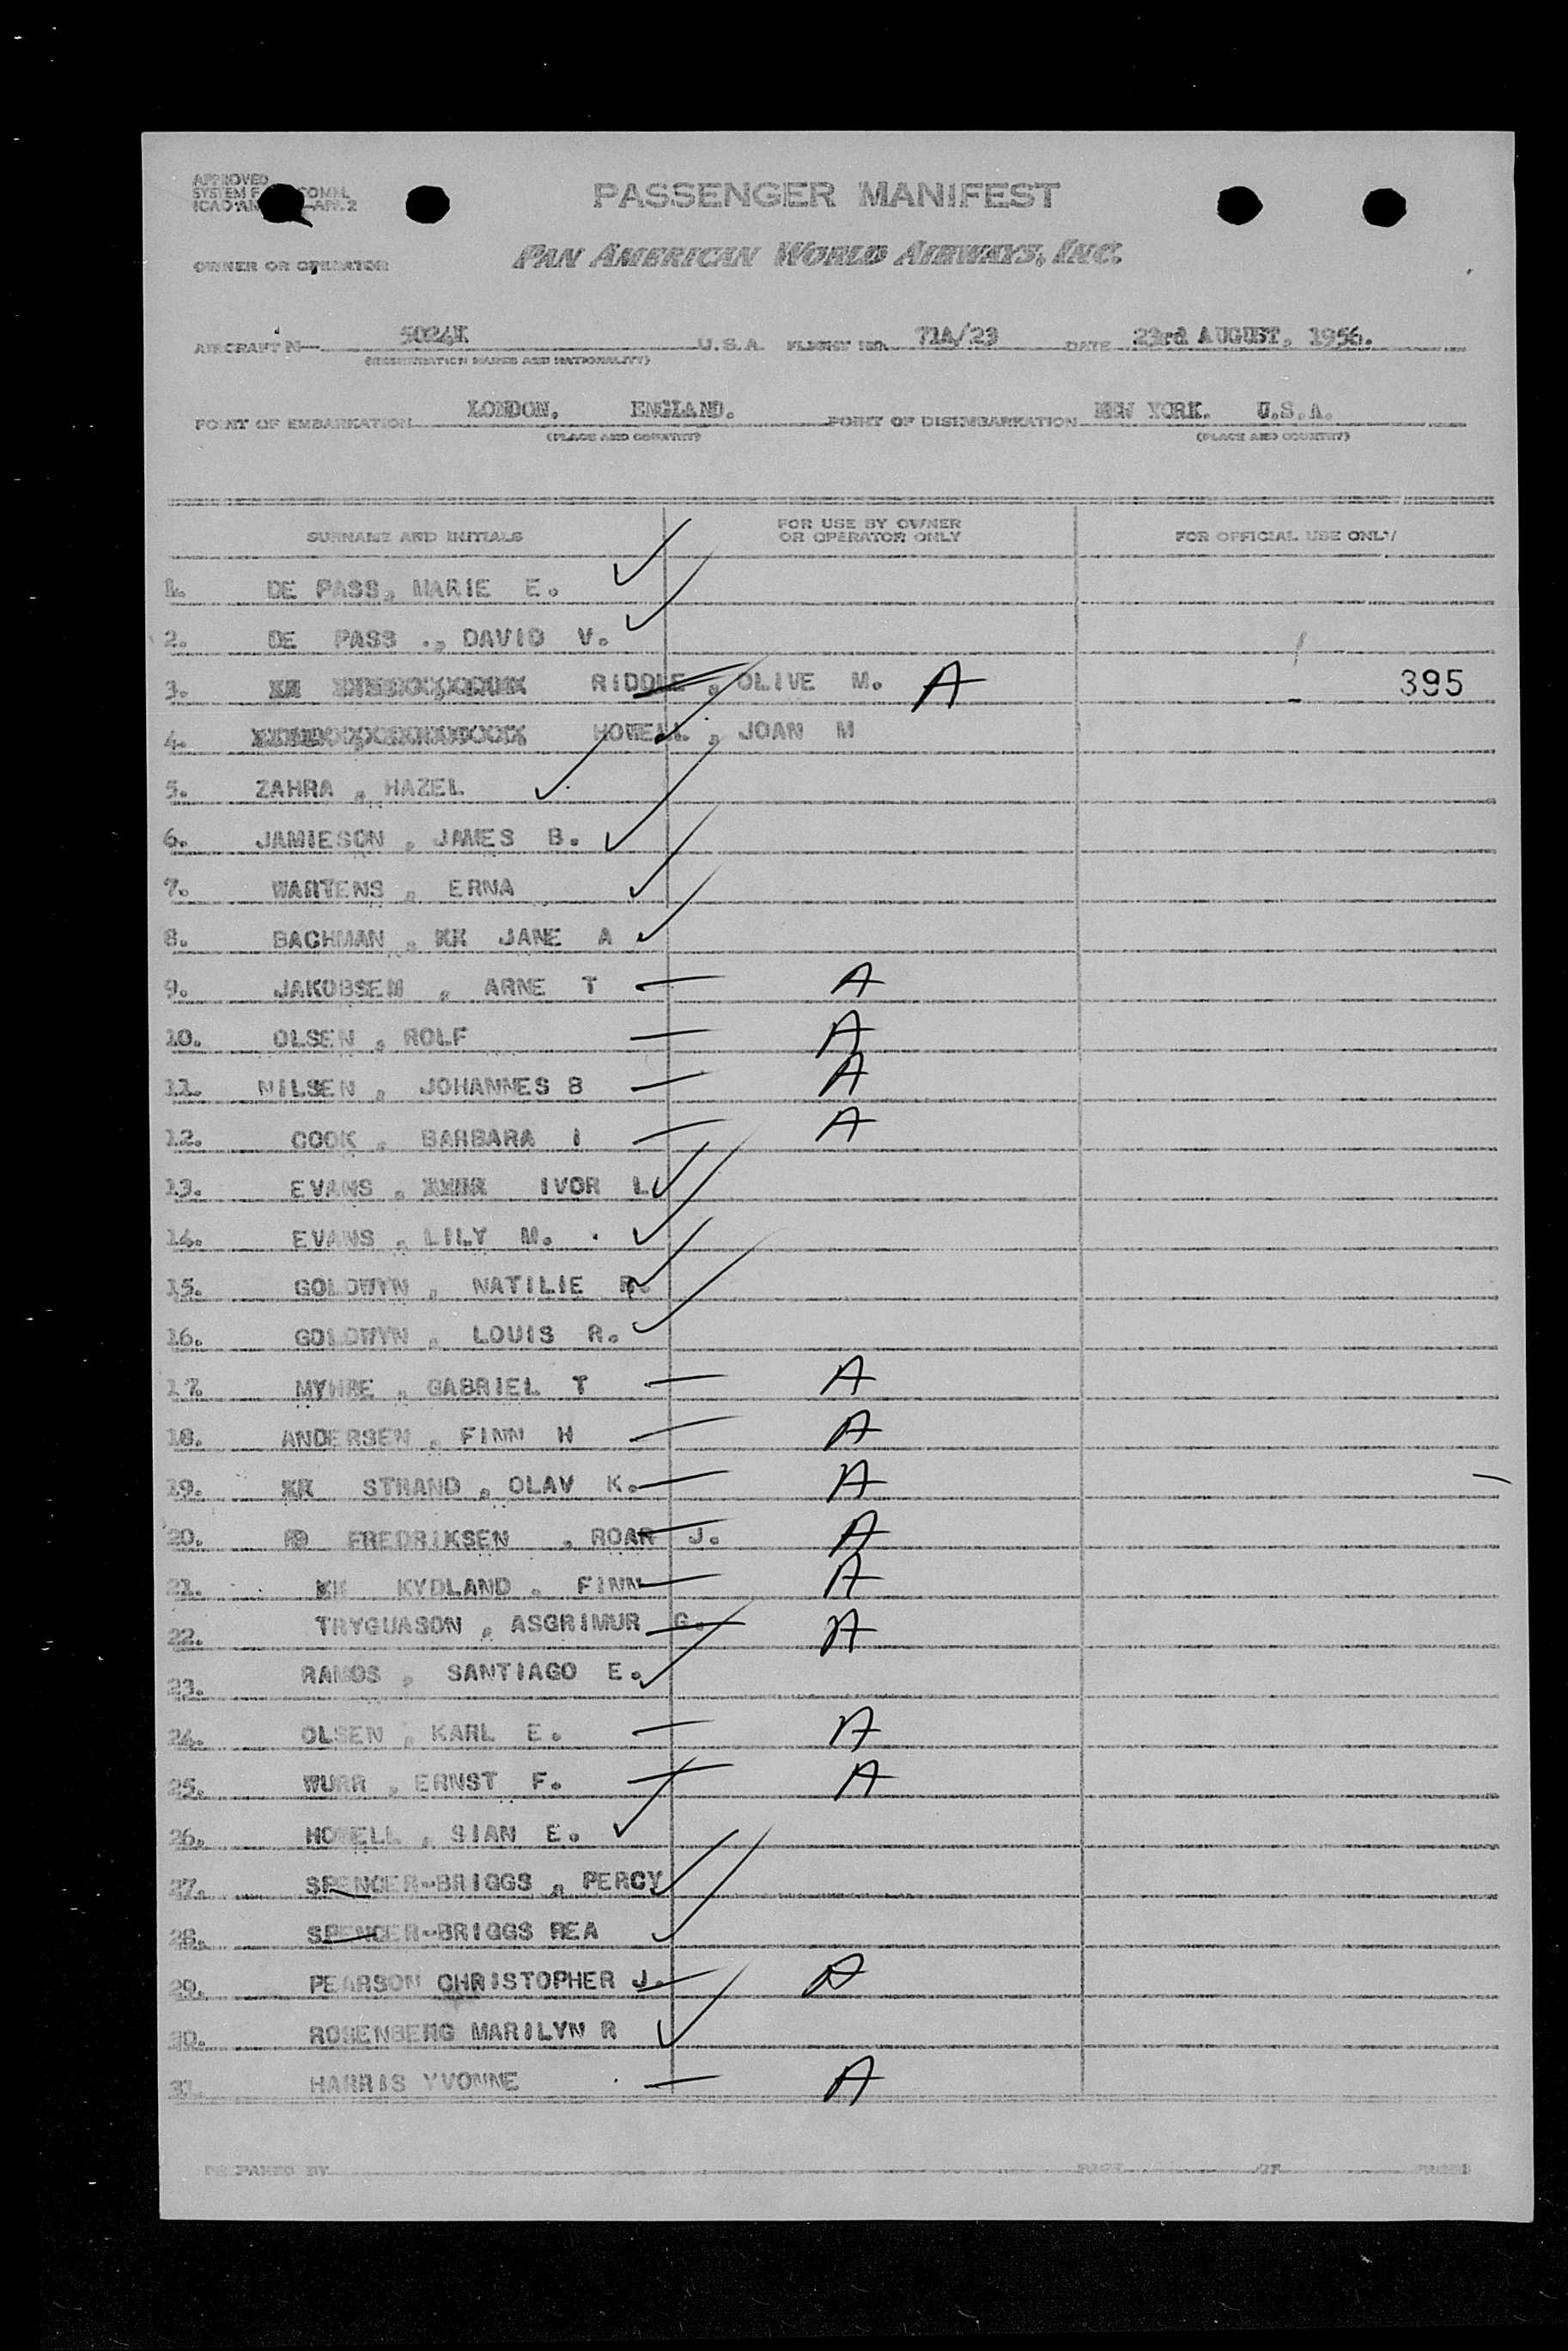 APPROVED
SYSTEM F COMM.
ICAO AN AP. 2
PASSENGER MANIFEST
OWNER OR OPERATOR PAN AMERICAN WORLD AIRWAYS, INC.
AIRCRAFT N— 5024K U.S.A. FLIGHT NO. 71A/23 DATE 23rd AUGUST, 1956.
(REGISTRATION MARKS AND NATIONALITY)
POINT OF EMBARKATION LONDON. ENGLAND. POINT OF DISEMBARKATION NEW YORK. U.S.A.
(PLACE AND COUNTRY) (PLACE AND COUNTRY)
SURNAME AND INITIALS FOR USE BY OWNER OR OPERATOR ONLY FOR OFFICIAL USE ONLY
1. DE PASS, MARIE E.
2. DE PASS ., DAVID V.
3. RIDDLE , OLIVE M. A 395
4. HOWELL , JOAN M
5. ZAHRA , HAZEL
6. JAMIESON , JAMES B.
7. WARTENS , ERNA
8. BACHMAN , XX JANE A
9. JAKOBSEM , ARNE T A
10. OLSEN , ROLF A
11. NILSEN , JOHANNES B A
12. COOK , BARBARA I A
13. EVANS , IVOR L
14. EVANS , LILY M.
15. GOLDWYN , NATILIE R.
16. GOLDWYN , LOUIS R.
17. MYHRE , GABRIEL T A
18. ANDERSEN , FINN H A
19. XX STRAND , OLAV K. A
20. FREDRIKSEN , ROAR J. A
21. XX KYDLAND , FINN A
22. TRYGUASON , ASGRIMUR G. A
23. RAMOS , SANTIAGO E.
24. OLSEN , KARL E. A
25. WURR , ERNST F. A
26. HOWELL , SIAN E.
27. SPENCER-BRIGGS , PERCY
28. SPENCER-BRIGGS REA
29. PEARSON CHRISTOPHER J. A
30. ROSENBERG MARILYN R
31. HARRIS YVONNE A
PREPARED BY PAGE OF PAGES